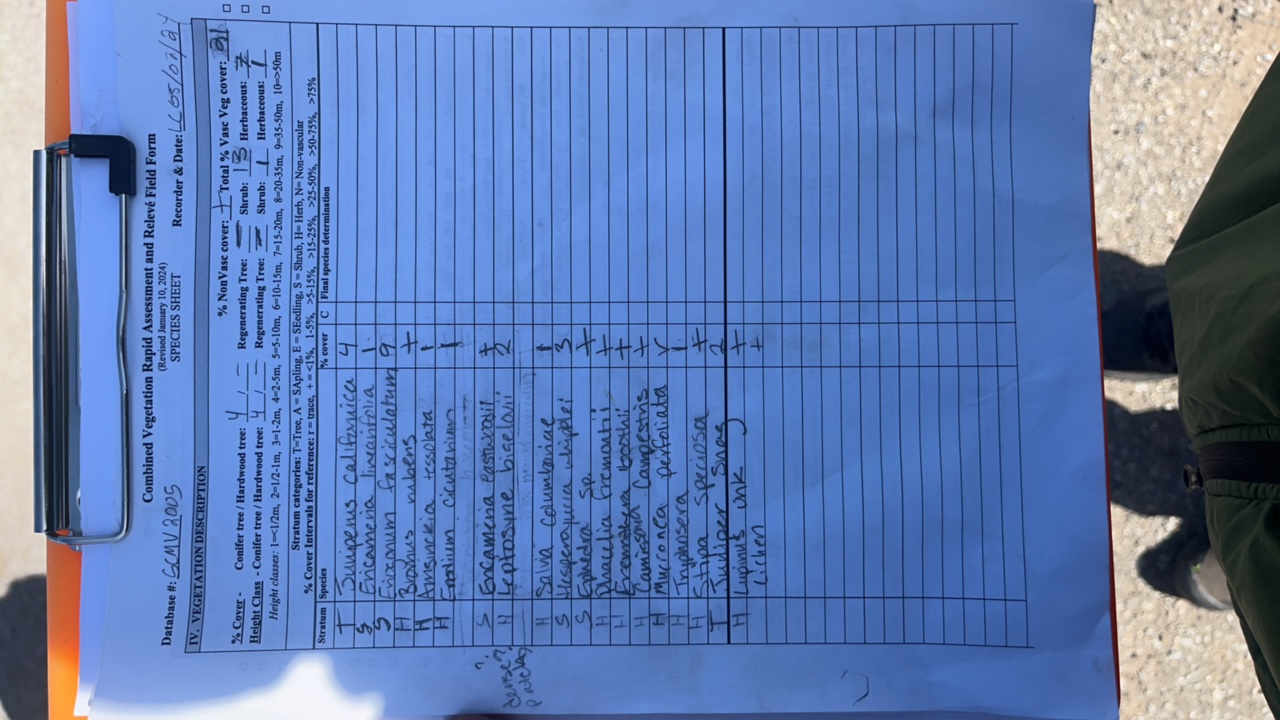 Combined Vegetation Rapid Assessment and Relevé Field Form
(Revised January 10, 2024)
SPECIES SHEET
Database #: GCMV2005 Recorder & Date: LC 05/02/24
IV. VEGETATION DESCRIPTION
% NonVasc cover: + Total % Vasc Veg cover: 21
% Cover - Conifer tree / Hardwood tree: 4 / — Regenerating Tree: — Shrub: 13 Herbaceous: 7
Height Class - Conifer tree / Hardwood tree: 4 / — Regenerating Tree: — Shrub: 1 Herbaceous: 1
Height classes: 1=<1/2m, 2=1/2-1m, 3=1-2m, 4=2-5m, 5=5-10m, 6=10-15m, 7=15-20m, 8=20-35m, 9=35-50m, 10=>50m
Stratum categories: T=Tree, A = SApling, E = SEedling, S = Shrub, H= Herb, N= Non-vascular
% Cover Intervals for reference: r = trace, + = <1%, 1-5%, >5-15%, >15-25%, >25-50%, >50-75%, >75%
Stratum Species % cover C Final species determination
T Juniperus californica 4
S Ericameria linearifolia 1
S Eriogonum fasciculatum 9
H Bromus rubens +
H Amsinckia tessolata 1
H Erodium cicutarium 1
S Ericameria +
H Leptosyne bigelovii 2
H Salvia Columbariae 1
S Hesperoyucca whipplei 3
S Ephedra Sp. +
H Phacelia Fremontii +
H Eremothera boothii +
H Camissonia Campestris +
H Mucronea perfoliata r
H 1
H Stipa Speciosa +
T Juniper Snag 2
H Lupinus unk +
Lichen +
dense?
patches